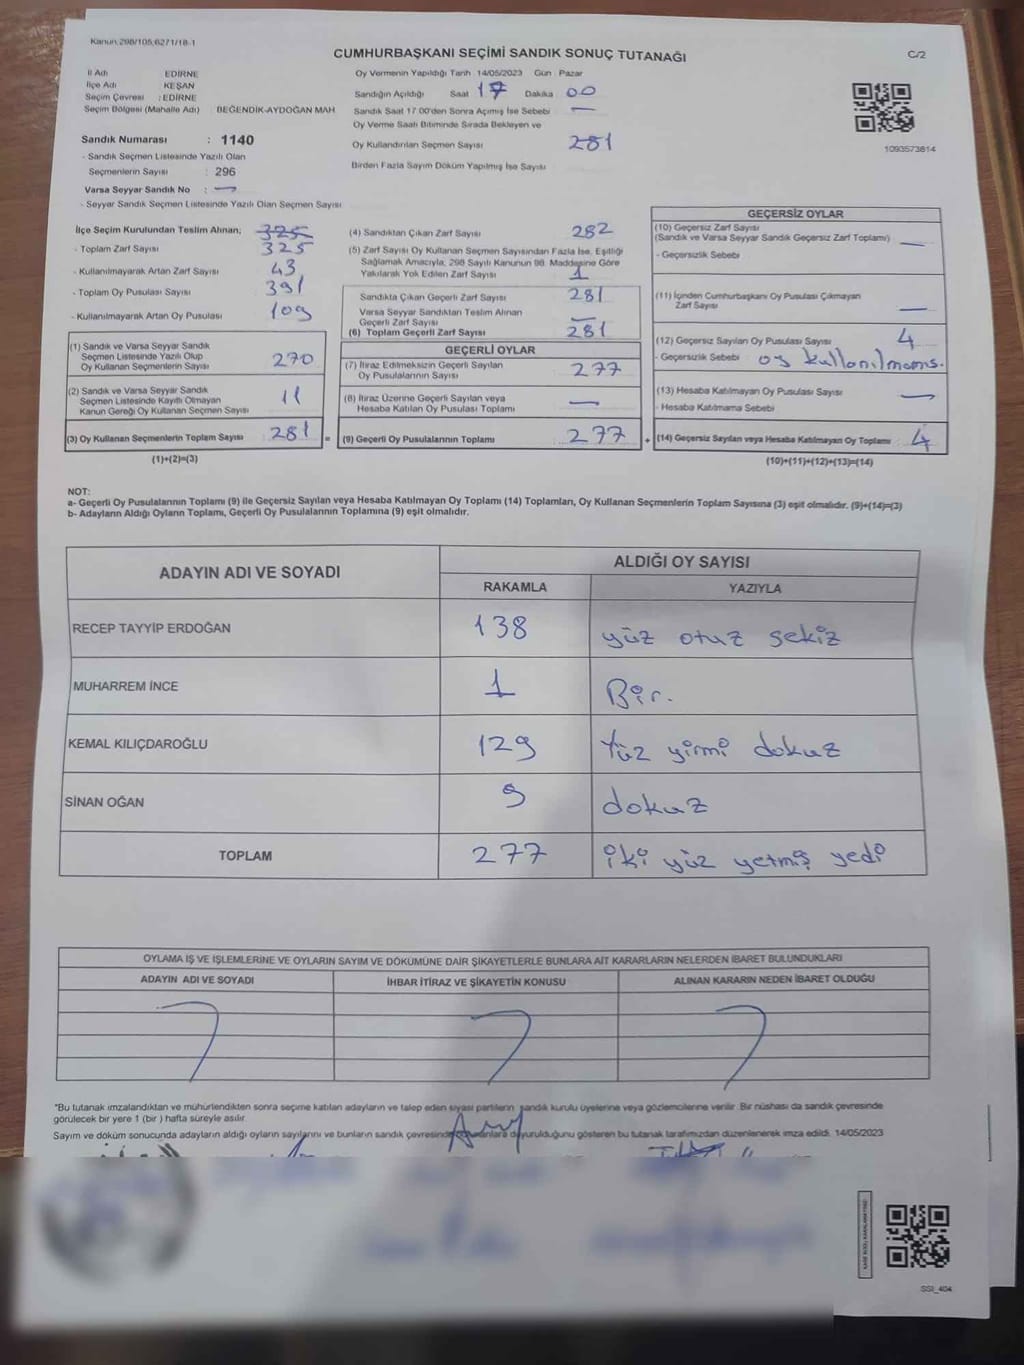 Kanun:298/105,6271/18-1
CUMHURBAŞKANI SEÇİMİ SANDIK SONUÇ TUTANAĞI
C/2
İl Adı EDİRNE
İlçe Adı KEŞAN
Seçim Çevresi : EDİRNE
Seçim Bölgesi (Mahalle Adı) : BEĞENDİK-AYDOĞAN MAH.
Sandık Numarası : 1140
- Sandık Seçmen Listesinde Yazılı Olan
Seçmenlerin Sayısı : 296
Varsa Seyyar Sandık No : —
- Seyyar Sandık Seçmen Listesinde Yazılı Olan Seçmen Sayısı
Oy Vermenin Yapıldığı Tarih 14/05/2023 Gün : Pazar
Sandığın Açıldığı Saat 17 Dakika 00
Sandık Saat 17.00'den Sonra Açılmış İse Sebebi —
Oy Verme Saati Bitiminde Sırada Bekleyen ve
Oy Kullandırılan Seçmen Sayısı 281
Birden Fazla Sayım Döküm Yapılmış İse Sayısı
1093573814
İlçe Seçim Kurulundan Teslim Alınan; 325
- Toplam Zarf Sayısı 325
- Kullanılmayarak Artan Zarf Sayısı 43
- Toplam Oy Pusulası Sayısı 391
- Kullanılmayarak Artan Oy Pusulası 109
(1) Sandık ve Varsa Seyyar Sandık
Seçmen Listesinde Yazılı Olup
Oy Kullanan Seçmenlerin Sayısı 270
(2) Sandık ve Varsa Seyyar Sandık
Seçmen Listesinde Kayıtlı Olmayan
Kanun Gereği Oy Kullanan Seçmen Sayısı 11
(3) Oy Kullanan Seçmenlerin Toplam Sayısı 281 =
(1)+(2)=(3)
(4) Sandıktan Çıkan Zarf Sayısı 282
(5) Zarf Sayısı Oy Kullanan Seçmen Sayısından Fazla İse, Eşitliği
Sağlamak Amacıyla, 298 Sayılı Kanunun 98. Maddesine Göre
Yakılarak Yok Edilen Zarf Sayısı 1
Sandıkta Çıkan Geçerli Zarf Sayısı 281
Varsa Seyyar Sandıktan Teslim Alınan
Geçerli Zarf Sayısı —
(6) Toplam Geçerli Zarf Sayısı 281
GEÇERLİ OYLAR
(7) İtiraz Edilmeksizin Geçerli Sayılan
Oy Pusulalarının Sayısı 277
(8) İtiraz Üzerine Geçerli Sayılan veya
Hesaba Katılan Oy Pusulası Toplamı —
(9) Geçerli Oy Pusulalarının Toplamı 277 +
GEÇERSİZ OYLAR
(10) Geçersiz Zarf Sayısı
(Sandık ve Varsa Seyyar Sandık Geçersiz Zarf Toplamı) —
- Geçersizlik Sebebi
(11) İçinden Cumhurbaşkanı Oy Pusulası Çıkmayan
Zarf Sayısı —
(12) Geçersiz Sayılan Oy Pusulası Sayısı 4
- Geçersizlik Sebebi oy kullanılmamış.
(13) Hesaba Katılmayan Oy Pusulası Sayısı —
- Hesaba Katılmama Sebebi
(14) Geçersiz Sayılan veya Hesaba Katılmayan Oy Toplamı 4
(10)+(11)+(12)+(13)=(14)
NOT:
a- Geçerli Oy Pusulalarının Toplamı (9) ile Geçersiz Sayılan veya Hesaba Katılmayan Oy Toplamı (14) Toplamları, Oy Kullanan Seçmenlerin Toplam Sayısına (3) eşit olmalıdır. (9)+(14)=(3)
b- Adayların Aldığı Oyların Toplamı, Geçerli Oy Pusulalarının Toplamına (9) eşit olmalıdır.
ADAYIN ADI VE SOYADI ALDIĞI OY SAYISI
RAKAMLA YAZIYLA
RECEP TAYYİP ERDOĞAN 138 yüz otuz sekiz
MUHARREM İNCE 1 Bir.
KEMAL KILIÇDAROĞLU 129 Yüz yirmi dokuz
SİNAN OĞAN 9 dokuz
TOPLAM 277 iki yüz yetmiş yedi
OYLAMA İŞ VE İŞLEMLERİNE VE OYLARIN SAYIM VE DÖKÜMÜNE DAİR ŞİKAYETLERLE BUNLARA AİT KARARLARIN NELERDEN İBARET BULUNDUKLARI
ADAYIN ADI VE SOYADI İHBAR İTİRAZ VE ŞİKAYETİN KONUSU ALINAN KARARIN NEDEN İBARET OLDUĞU
*Bu tutanak imzalandıktan ve mühürlendikten sonra seçime katılan adayların ve talep eden siyasi partilerin sandık kurulu üyelerine veya gözlemcilerine verilir. Bir nüshası da sandık çevresinde
görülecek bir yere 1 (bir) hafta süreyle asılır.
Sayım ve döküm sonucunda adayların aldığı oyların sayılarını ve bunların sandık çevresinde duyurulduğunu gösteren bu tutanak tarafımızdan düzenlenerek imza edildi. 14/05/2023
SSI_404